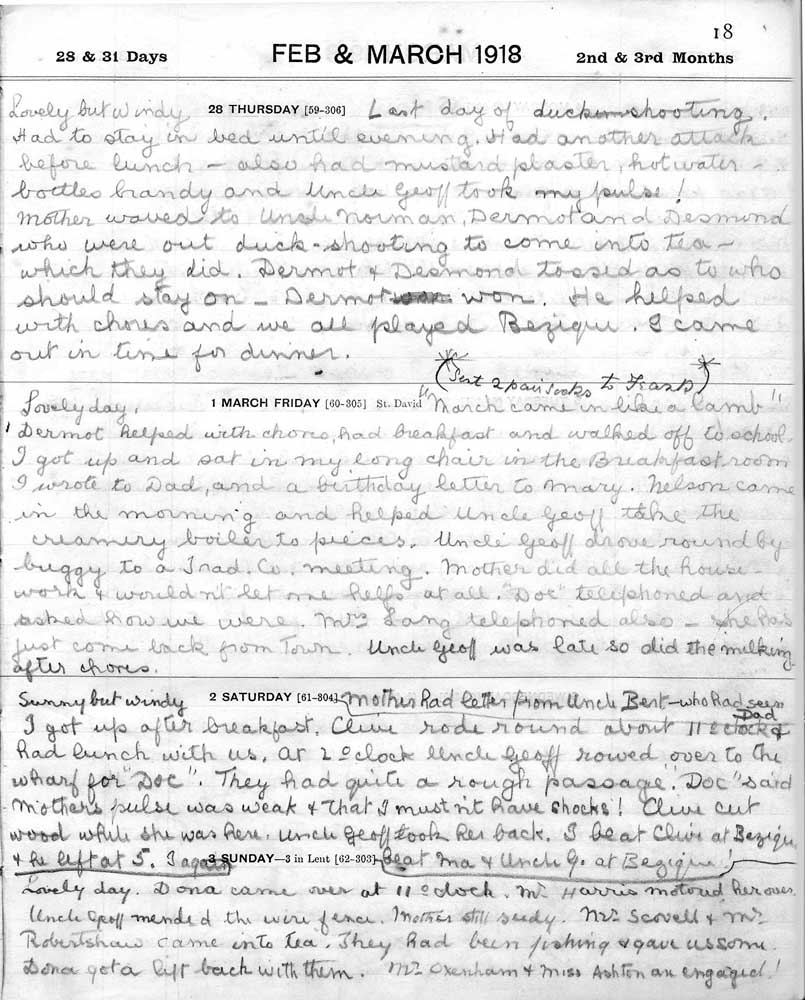 18
28 & 31 Days FEB & MARCH 1918 2nd & 3rd Months
Lovely but windy 28 THURSDAY [59-306] Last day of duck shooting.
Had to stay in bed until evening. Had another attack
before lunch – also had mustard plaster, hot water-
bottles brandy and Uncle Geoff took my pulse!
Mother waved to Uncle Norman, Dermot and Desmond
who were out duck-shooting to come into tea –
which they did. Dermot & Desmond tossed as to who
should stay on – Dermot won. He helped
with chores and we all played Bezique. I came
out in time for dinner.
(Sent 2 pair socks to)
Lovely day. 1 MARCH FRIDAY [60-305] St. David "March came in like a lamb"
Dermot helped with chores, had breakfast and walked off to school.
I got up and sat in my long chair in the Breakfast room
I wrote to Dad, and a birthday letter to Mary. Nelson came
in the morning and helped Uncle Geoff take the
creamery boiler to pieces. Uncle Geoff drove round by
buggy to a Trad. Co. meeting. Mother did all the house-
work & wouldn't let me help at all. "Doc" telephoned and
asked how we were. Mrs Lang telephoned also – she has
just come back from Town. Uncle Geoff was late so did the milking
after chores.
Sunny but windy 2 SATURDAY [61-304] Mother had letter from Uncle Bert – who had seen
Dad
I got up after breakfast. Clive rode round about 11 o'clock &
had lunch with us. At 2 o'clock Uncle Geoff rowed over to the
wharf for "Doc". They had quite a rough passage. "Doc" said
Mother's pulse was weak & that I mustn't have shocks! Clive cut
wood while she was here. Uncle Geoff took her back. I beat Clive at Bezique
& he left at 5. I again 3 SUNDAY—3 in Lent [62-303] beat Ma & Uncle G. at Bezique!
Lovely day. Dona came over at 11 o'clock. Mr Harris motored her over.
Uncle Geoff mended the wire fence. Mother still seedy. Mr. Scovell & Mr
Robertshaw came into tea. They had been fishing & gave us some.
Dona got a lift back with them. Mr Oxenham & Miss Ashton are engaged!